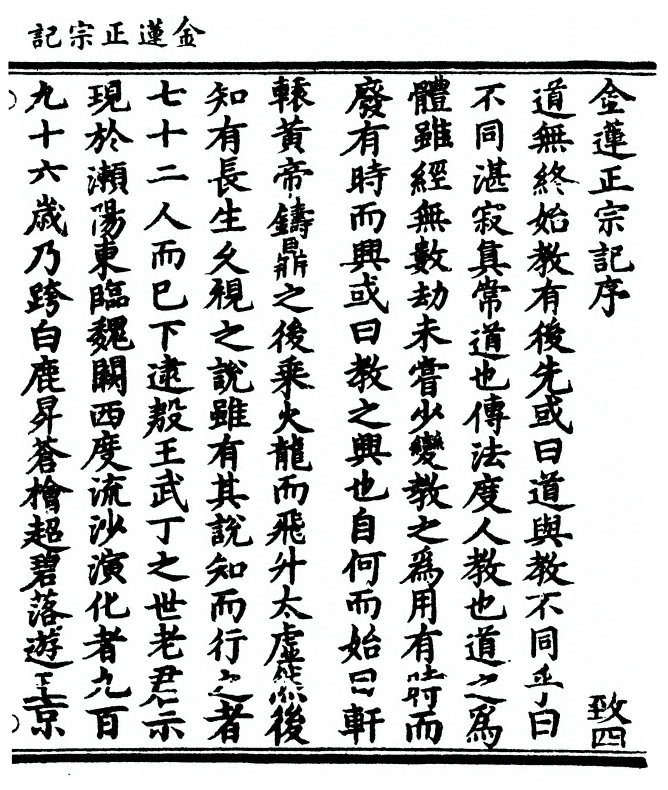 金蓮正宗記
金蓮正宗記序
致四
道無終始教有後先或曰道與教不同乎曰
不同湛寂眞常道也傳法度人教也道之爲
體雖經無數劫未嘗少變教之爲用有時而
廢有時而興或曰教之興也自何而始曰軒
轅黃帝鑄鼎之後乗火龍而飛升太虛然後
知有長生久視之說雖有其說知而行之者
七十二人而已下逮殷王武丁之世老君示
現於瀬陽東臨魏闕西度流沙演化者九百
九十六歲乃跨白鹿昇蒼檜超碧落遊玉京